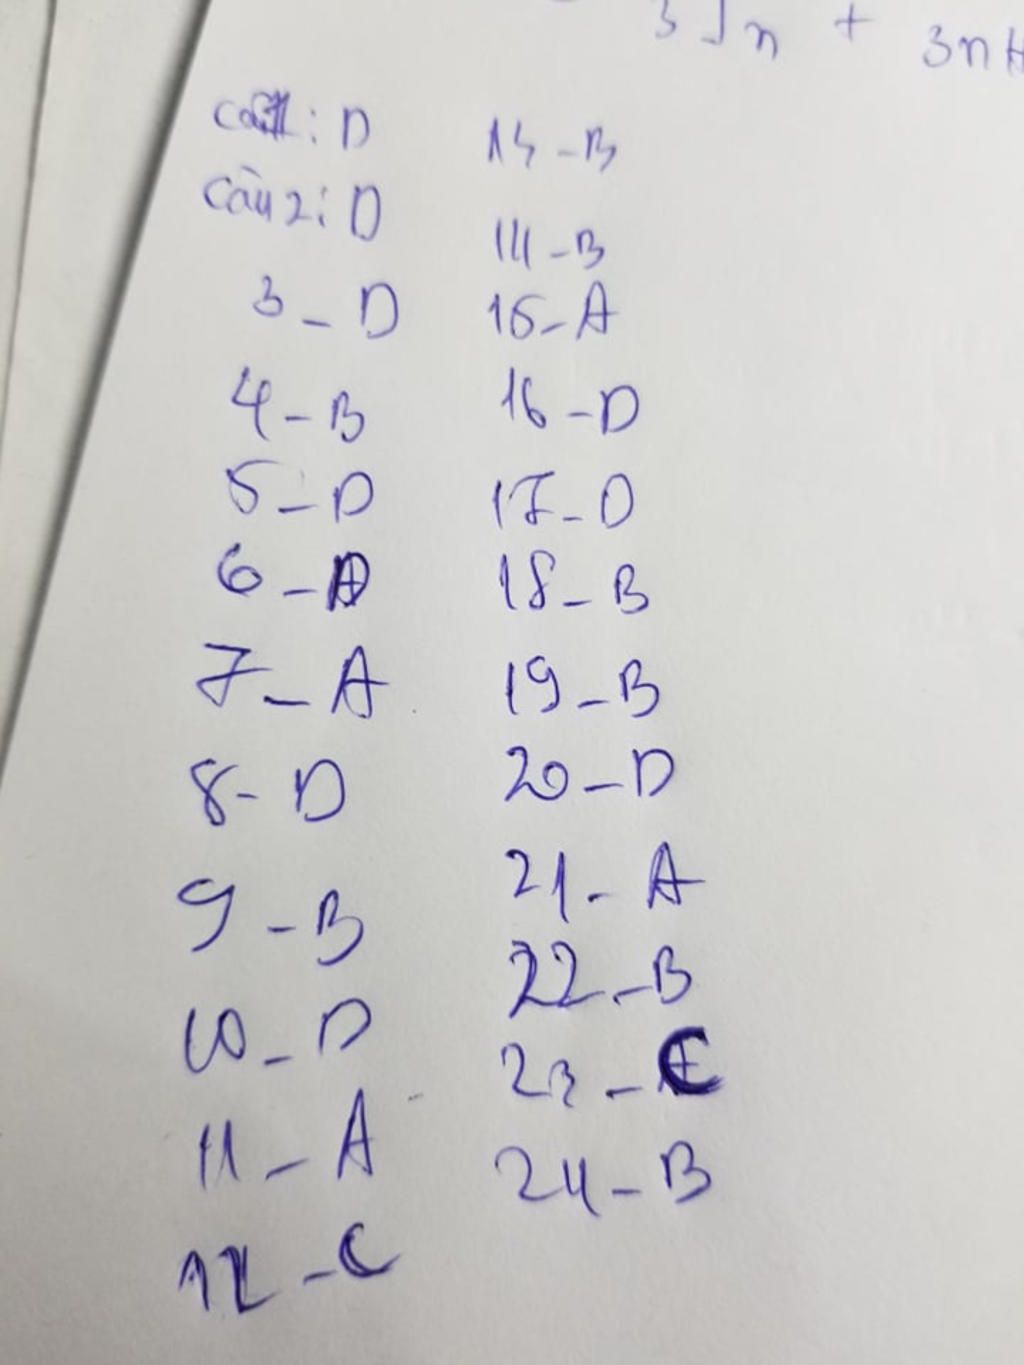 3]n + 3nH
Câu1: D
Câu2: D
3 - D
4 - B
5 - D
6 -
7 - A
8 - D
9 - B
10 - D
11 - A
12 - C
13 - B
14 - B
15 - A
16 - D
17 - D
18 - B
19 - B
20 - D
21 - A
22 - B
23 - C
24 - B